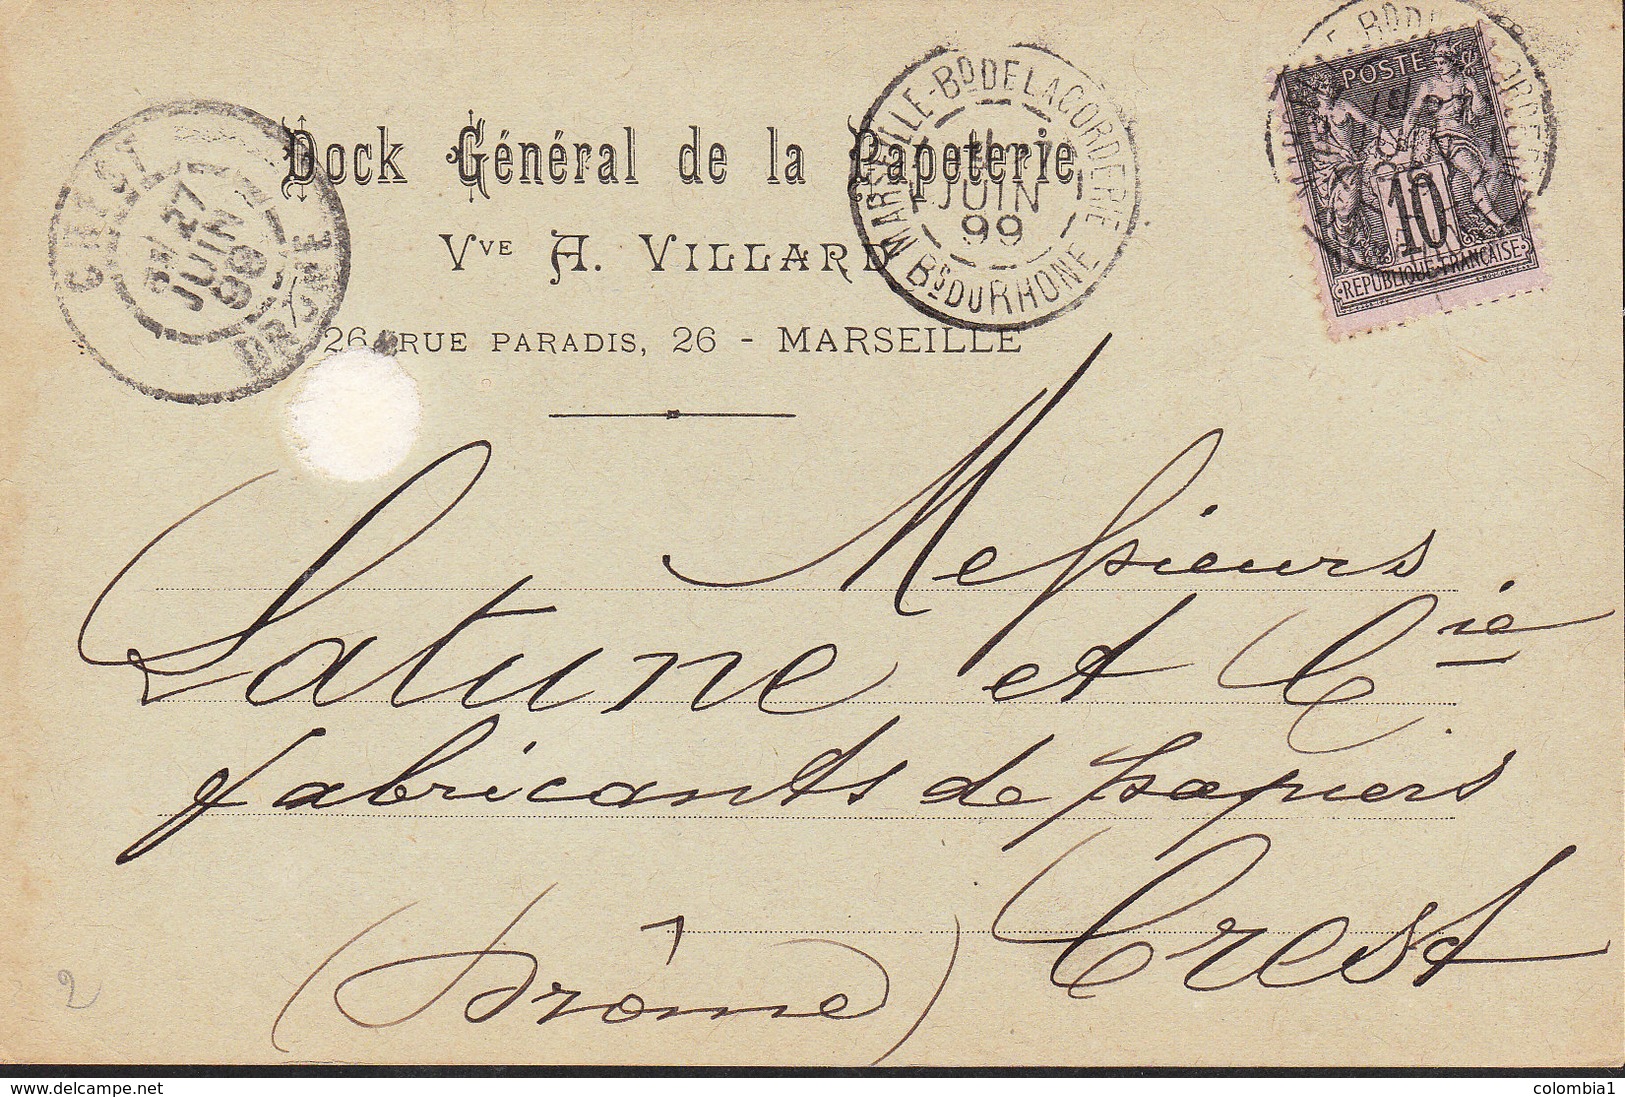 Dock Général de la Papeterie
Vve A. VILLARD
26, RUE PARADIS, 26 - MARSEILLE
CREST
27
JUIN
99
DRÔME
MARSEILLE-Bd DE LACORDERIE
JUIN
99
Bs DU RHONE
POSTE
10
RÉPUBLIQUE FRANÇAISE
Messieurs
Latune et Cie
fabricants de papiers
Crest
(Drôme)
2
www.delcampe.net
colombia1